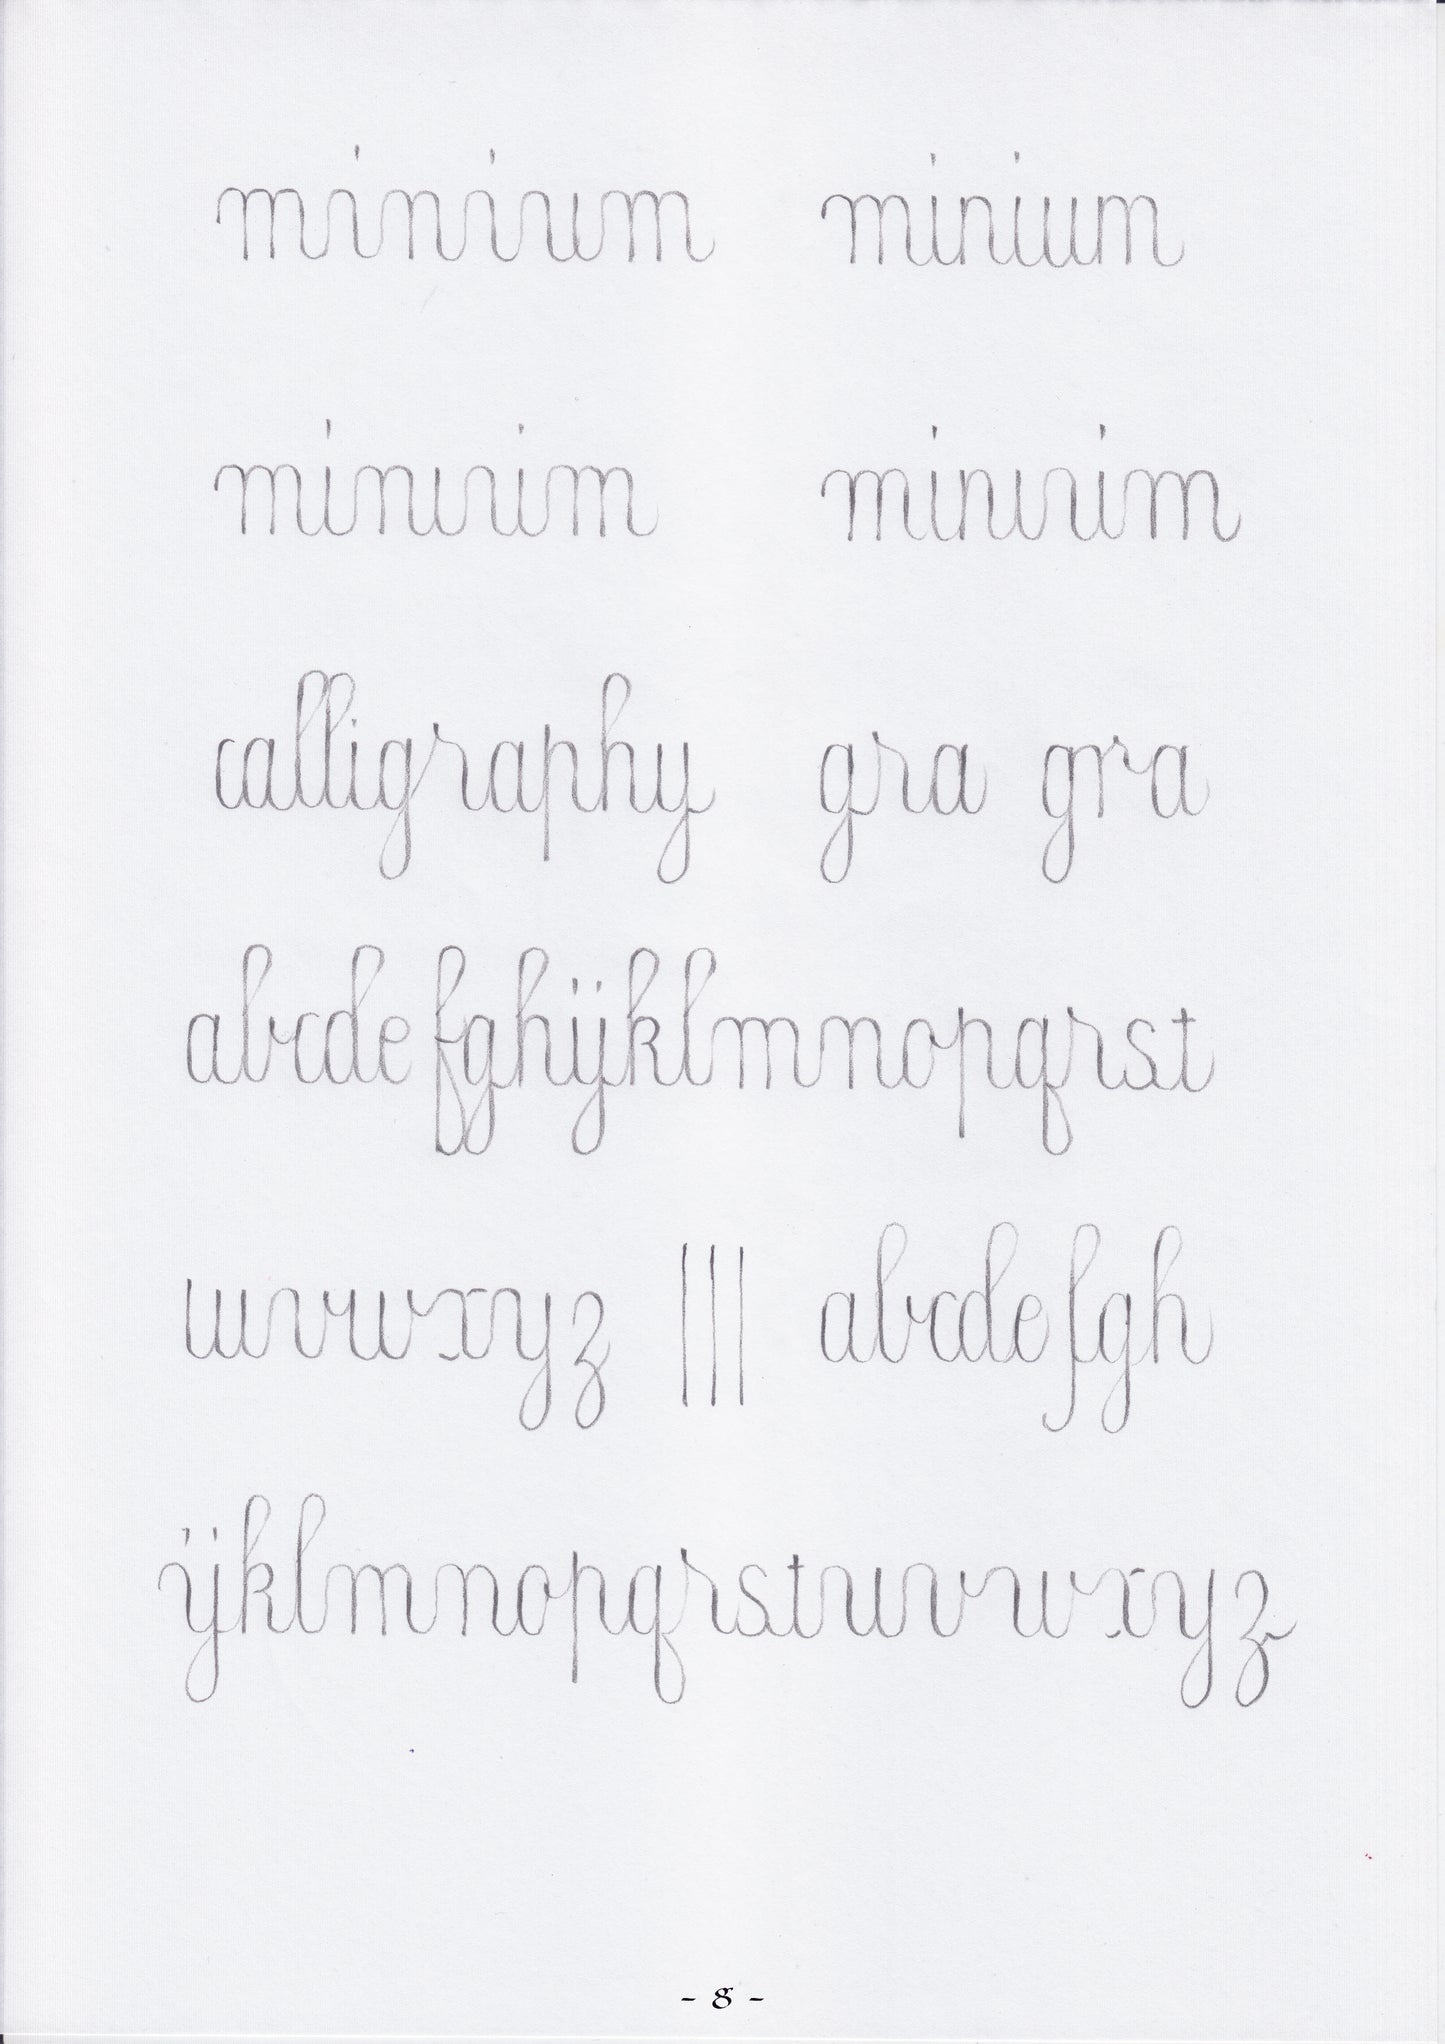 minium minium
minuim minuim
calligraphy gra gra
abcdefghijklmnopqrst
uvwxyz ||| abcdefgh
ijklmnopqrstuvwxyz
- 8 -